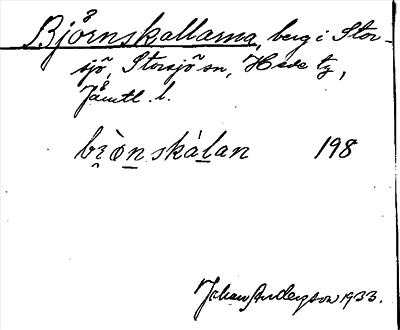 Björnskallarna, berg i Stor-
sjö, Storsjö sn, Hede tg,
Jämtl. l.
bi̯ö̀n̠skál̠an 198
Johan Anderson 1933.